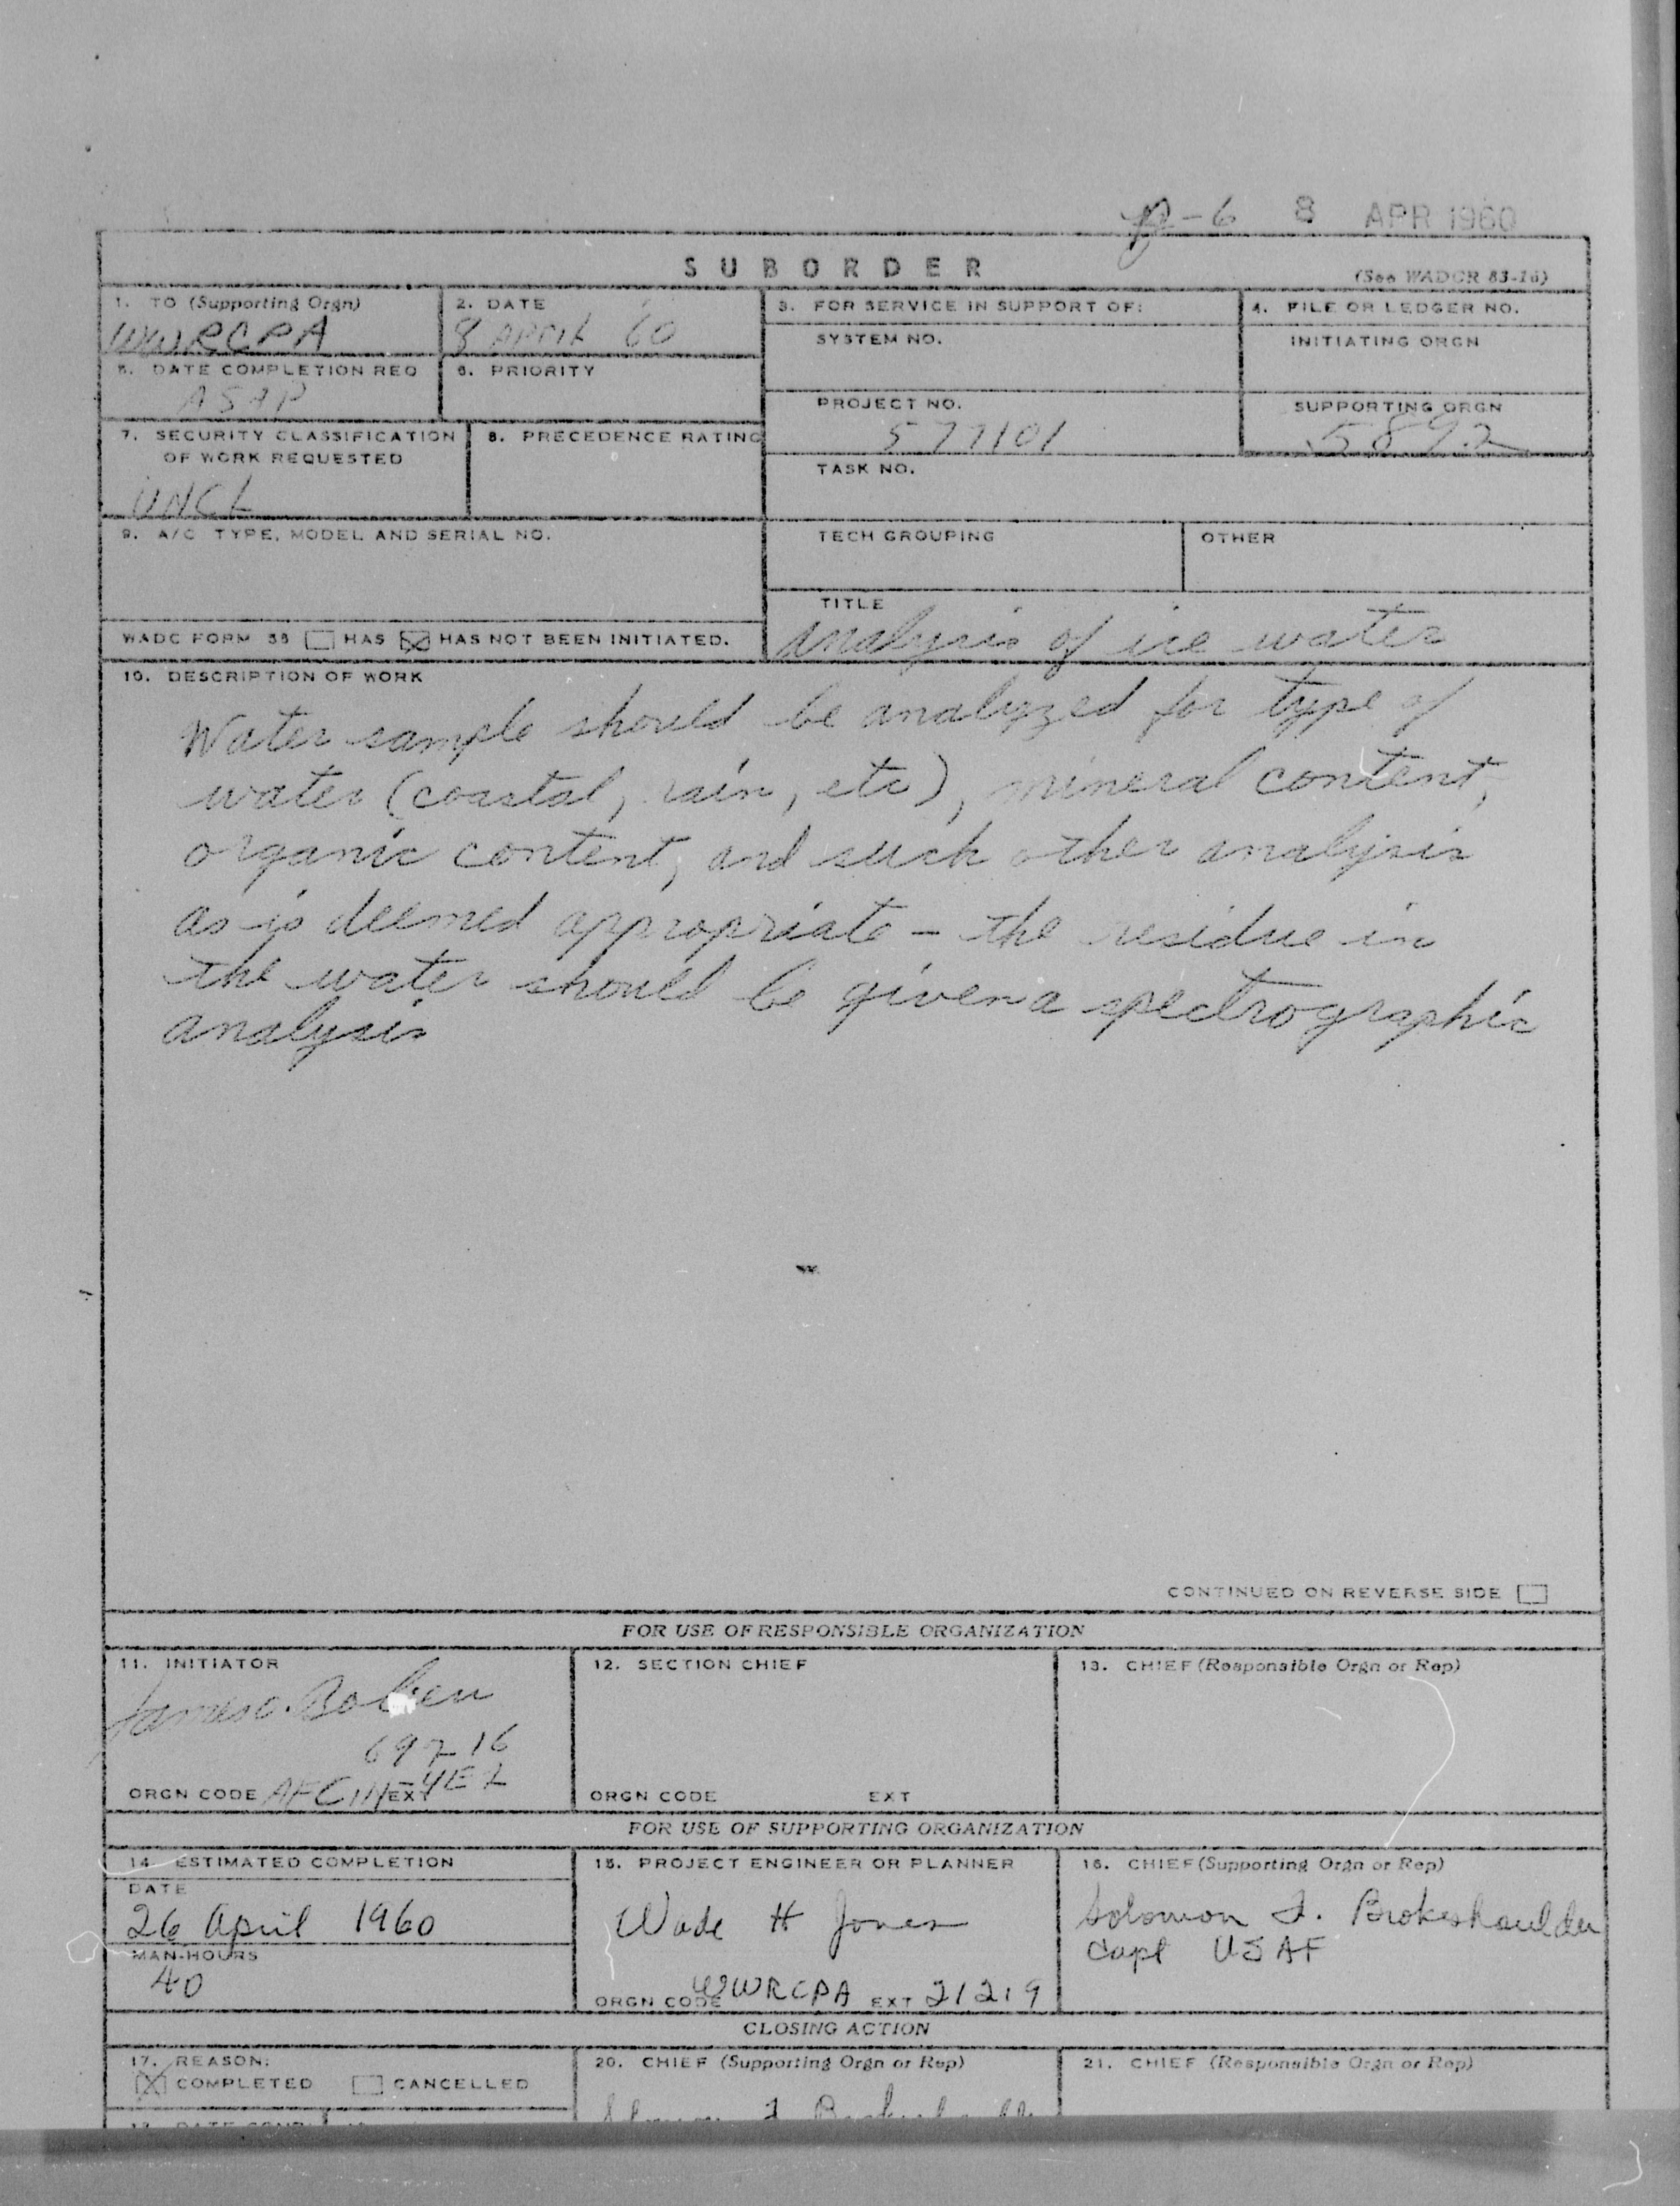 -6 8 APR 1960
SUBORDER
(See WADCR 83-16)
1. TO (Supporting Orgn)
WWRCPA
2. DATE
8 APRIL 60
3. FOR SERVICE IN SUPPORT OF:
4. FILE OR LEDGER NO.
SYSTEM NO.
INITIATING ORGN
5. DATE COMPLETION REQ
ASAP
6. PRIORITY
PROJECT NO.
577101
SUPPORTING ORGN
5892
7. SECURITY CLASSIFICATION
OF WORK REQUESTED
UNCL
8. PRECEDENCE RATING
TASK NO.
9. A/C TYPE, MODEL AND SERIAL NO.
TECH GROUPING
OTHER
TITLE
Analysis of ice water
WADC FORM 38 HAS HAS NOT BEEN INITIATED.
10. DESCRIPTION OF WORK
Water sample should be analyzed for type of
water (coastal, rain, etc), mineral content,
organic content, and such other analysis
as is deemed appropriate - the residue in
the water should be given a spectrographic
analysis
CONTINUED ON REVERSE SIDE
FOR USE OF RESPONSIBLE ORGANIZATION
11. INITIATOR
James C.
69216
ORGN CODE AFCIN EXT 4E2
12. SECTION CHIEF
ORGN CODE EXT
13. CHIEF (Responsible Orgn or Rep)
FOR USE OF SUPPORTING ORGANIZATION
14. ESTIMATED COMPLETION
DATE
26 April 1960
MAN-HOURS
40
15. PROJECT ENGINEER OR PLANNER
Wade H Jones
ORGN CODE WWRCPA EXT 21219
16. CHIEF (Supporting Orgn or Rep)
Solomon F. Brokeshoulder
Capt USAF
CLOSING ACTION
17. REASON:
COMPLETED CANCELLED
20. CHIEF (Supporting Orgn or Rep)
21. CHIEF (Responsible Orgn or Rep)